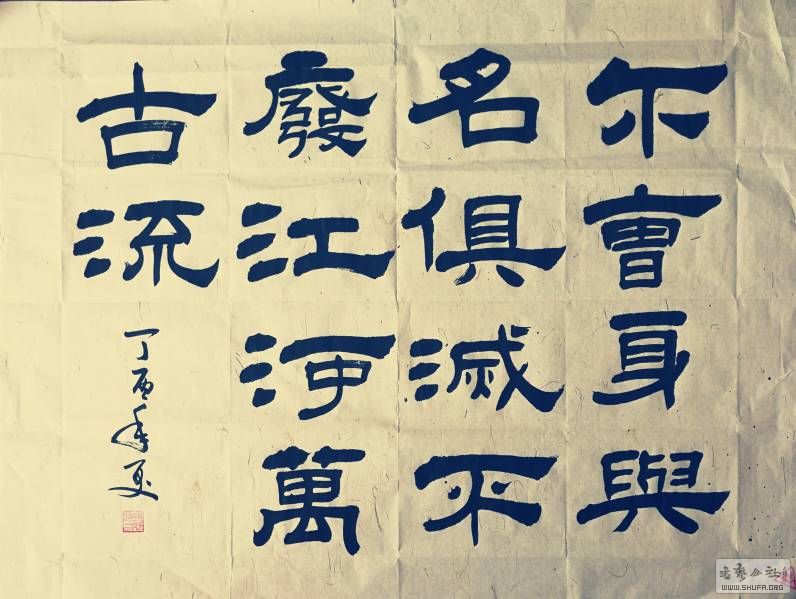 尔曹身與
名俱滅不
廢江河萬
古流
丁酉年夏
書藝公社
WWW.SHUFA.ORG